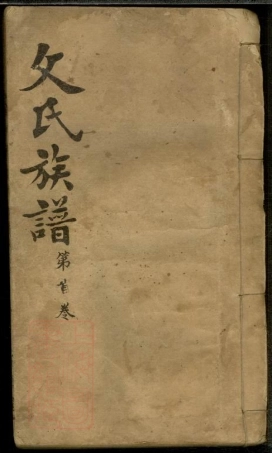 文氏族譜
第首卷